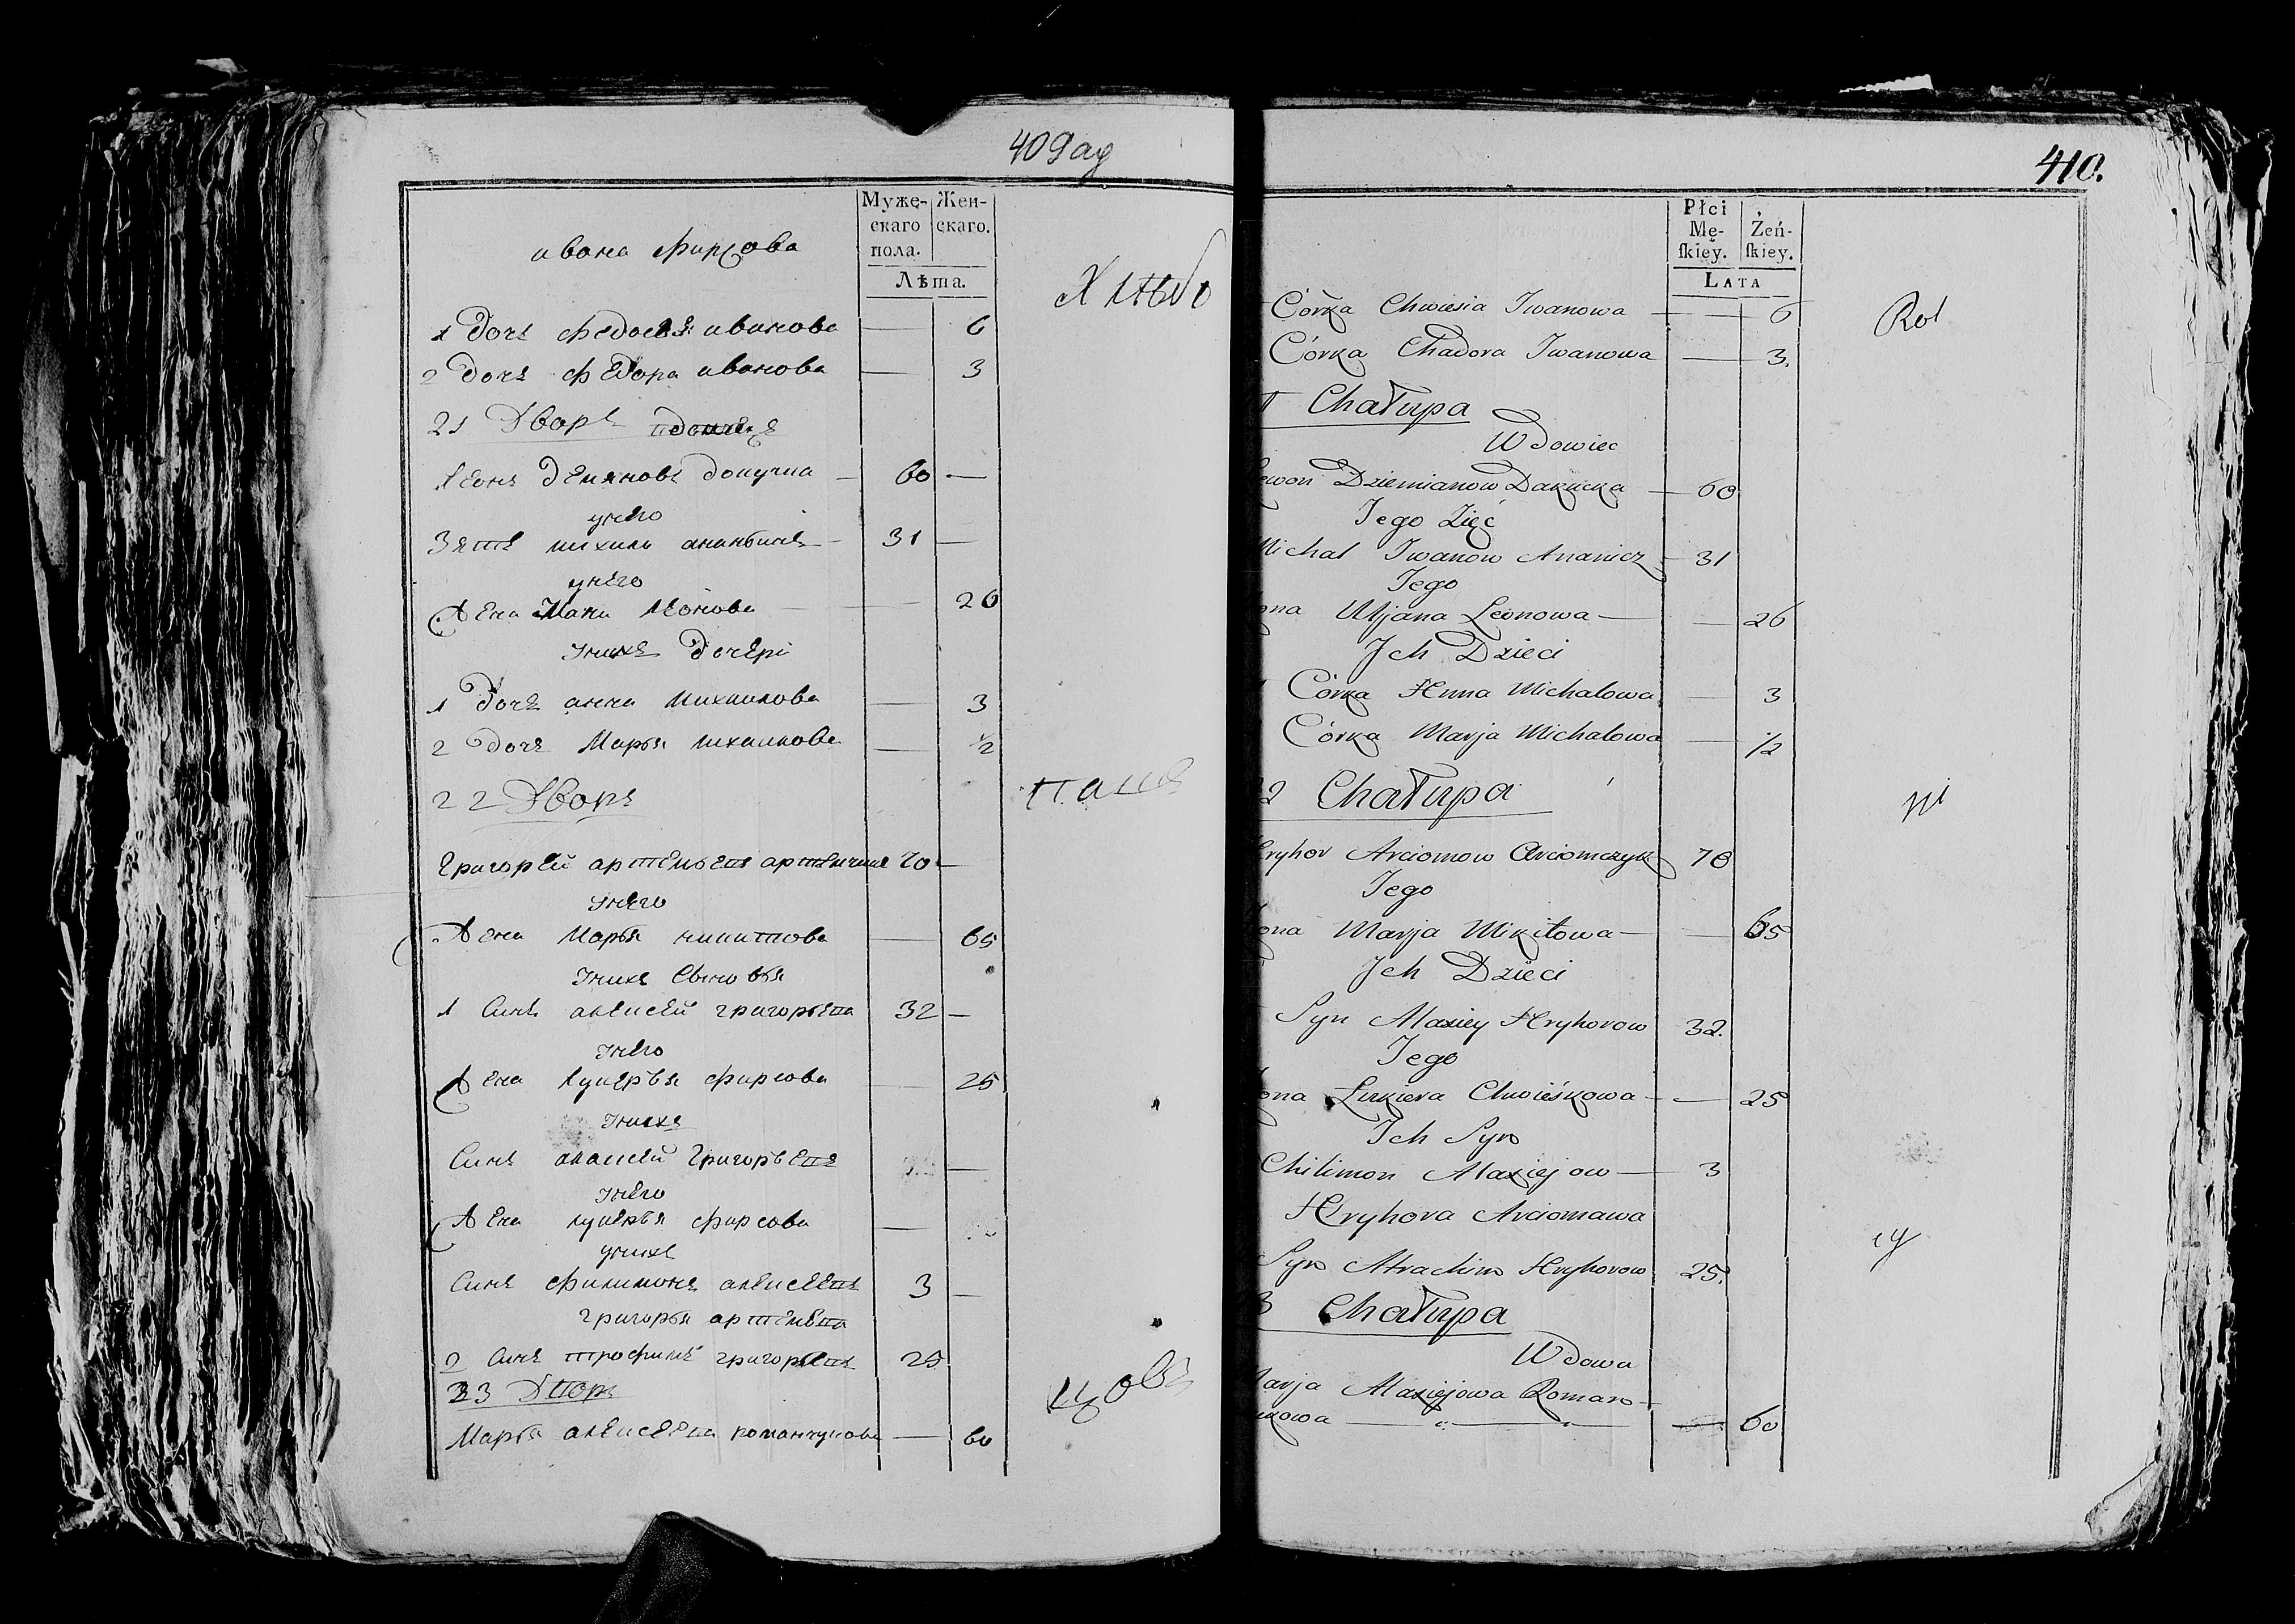 409 ад
Муже-
скаго
пола.
Жен-
скаго.
Лѣта.
ивана фирсова
Хлѣбо
1 дочь федосья иванова — 6
2 дочь федора иванова — 3
21 Дворъ
леонъ демяновъ докучка — 60 —
унего
Зять михаль 31 —
унего
Жена Леонова — 26
уних дочери
1 дочь анна михаилова — 3
2 дочь Марья михаилова — ½
22 Дворъ
паше
григорей артемьевъ 70 —
унего
Жена Марья никитова — 65
уних сыновья
1 Синъ алексей григорьева 32 —
унего
Жена лукерья фирсова — 25
унихъ
Синъ алексей григорьевъ —
унего
Жена лукерья фирсова —
унихъ
Синъ филимонъ алексеевъ 3 —
григорья артемева
2 Синъ трофимъ григорьевъ 25
23 Дворъ
цовъ
Марья алексеева романчукова — 60
410.
Płci
Mę-
skiey.
Żeń-
skiey.
LATA
Rol
Córka Chwiesia Iwanowa — 6
Córka Chadora Iwanowa — 3.
1 Chałupa
Wdowiec
ewon Dziemianow Dakucka — 60
Jego Zięć
Michal Iwanow Ananicz — 31
Jego
ona Uljana Leonowa — 26
Jch Dzieci
1 Córka Hanna Michalowa — 3
Córka Marja Michalowa — 1/2
2 Chałupa
ni
ryhor Arciomow Arciomczyk 70
Jego
ona Marja Mikitowa — 65
Jch Dzieci
Syn Alaxiey Hryhorow 32.
Jego
ona Łukiera Chwieśkowa — 25
Jch Syn
Chilimon Alaxiejow — 3
Hryhora Arciomawa
cy
Syn Atrachim Hryhorow 25.
3 Chałupa
Wdowa
arja Alaxiejowa Roman-
kowa — 60